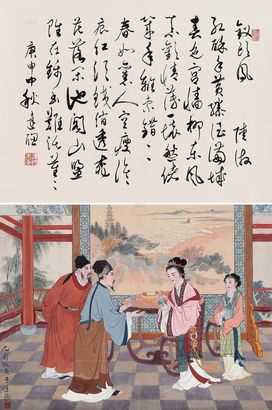 釵頭鳳 陸游
紅酥手黄縢酒滿城
春色宮牆柳東風
惡歡情薄一懷愁緒
幾年離索錯〻〻
春如舊人空瘦淚
痕紅浥鮫綃透桃
花落閑池閣山盟
雖在錦書難託莫〻〻
庚申中秋